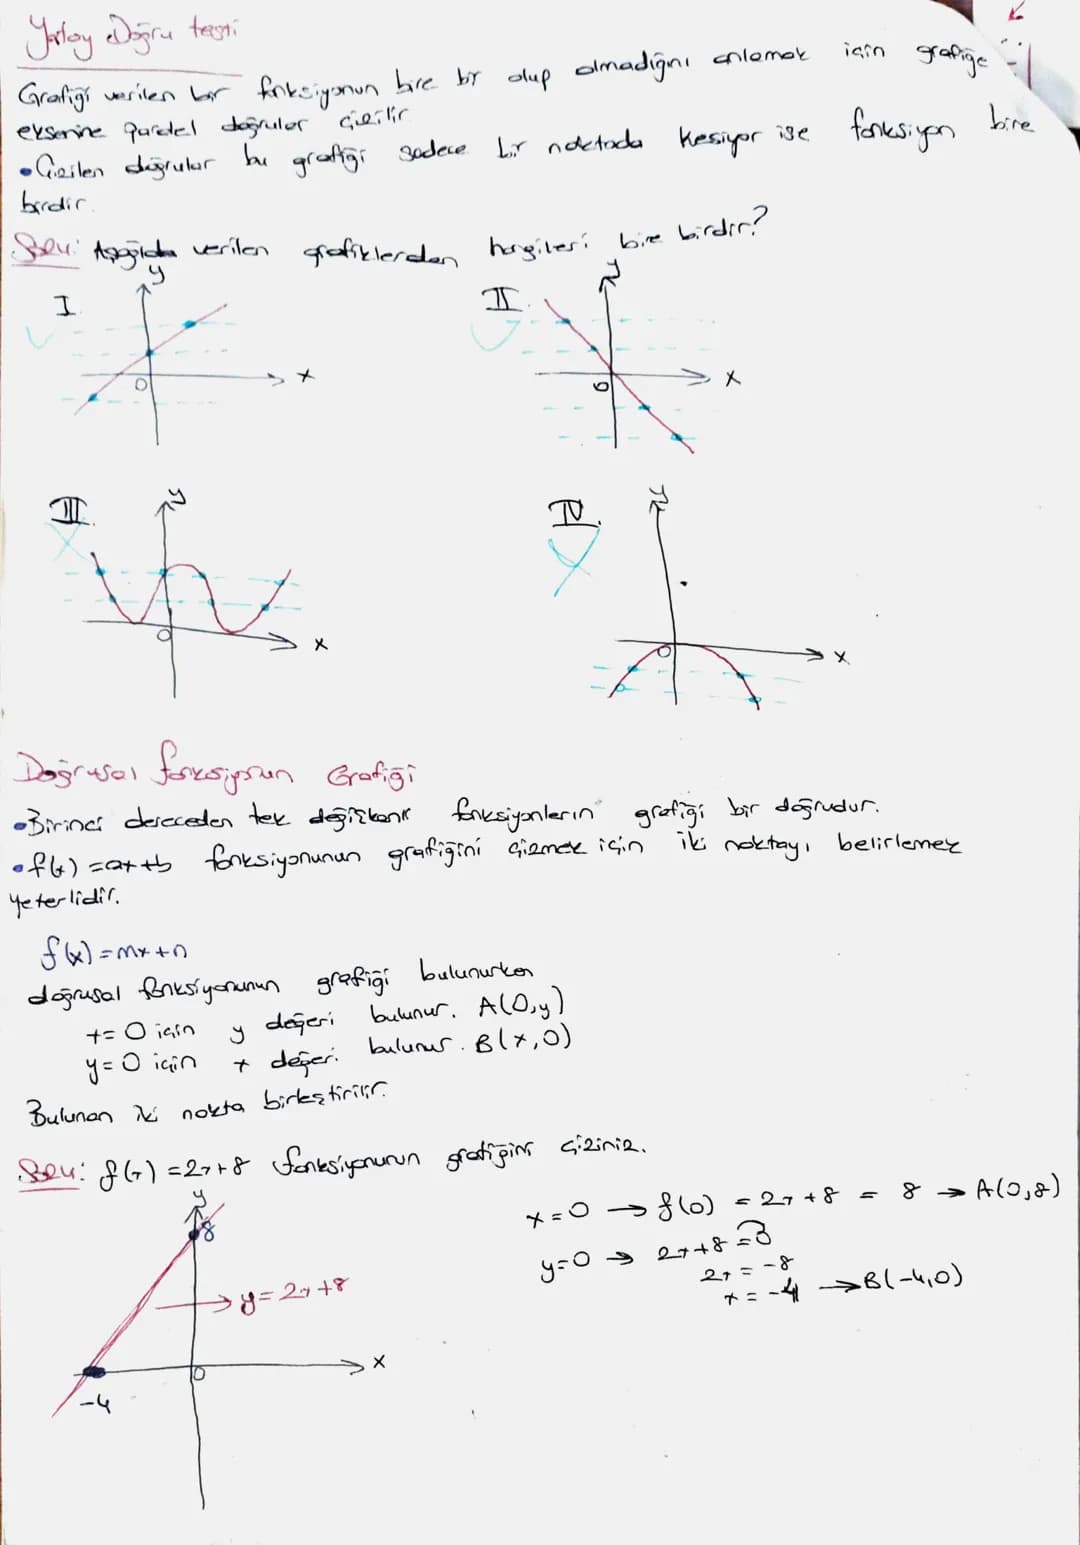 Yatay Doğru testi
Grafiği verilen bir fonksiyonun bire bir olup olmadığını anlamak için grafiğe
eksenine paralel doğrular çizilir
• Çizilen doğrular bu grafiği sadece bir noktada kesiyor ise fonksiyon bire
birdir.
Soru: Aşağıda verilen grafiklerden hangileri bire birdir?
I. y x O
II. y x O
III. y x O
IV. y x O
Doğrusal fonksiyonun Grafiği
• Birinci dereceden tek değişkenli fonksiyonların grafiği bir doğrudur.
• f(x) = ax+b fonksiyonunun grafiğini çizmek için iki noktayı belirlemek
yeterlidir.
f(x) = mx+n
doğrusal fonksiyonunun grafiği bulunurken
x = 0 için y değeri bulunur. A(0,y)
y = 0 için x değeri bulunur. B(x,0)
Bulunan iki nokta birleştirilir.
Soru: f(x) = 2x+8 fonksiyonunun grafiğini çiziniz.
x = 0 → f(0) = 2x+8 = 8 → A(0,8)
y = 0 → 2x+8 = 0
2x = -8
x = -4 → B(-4,0)
y
8
y = 2x+8
x
O
-4